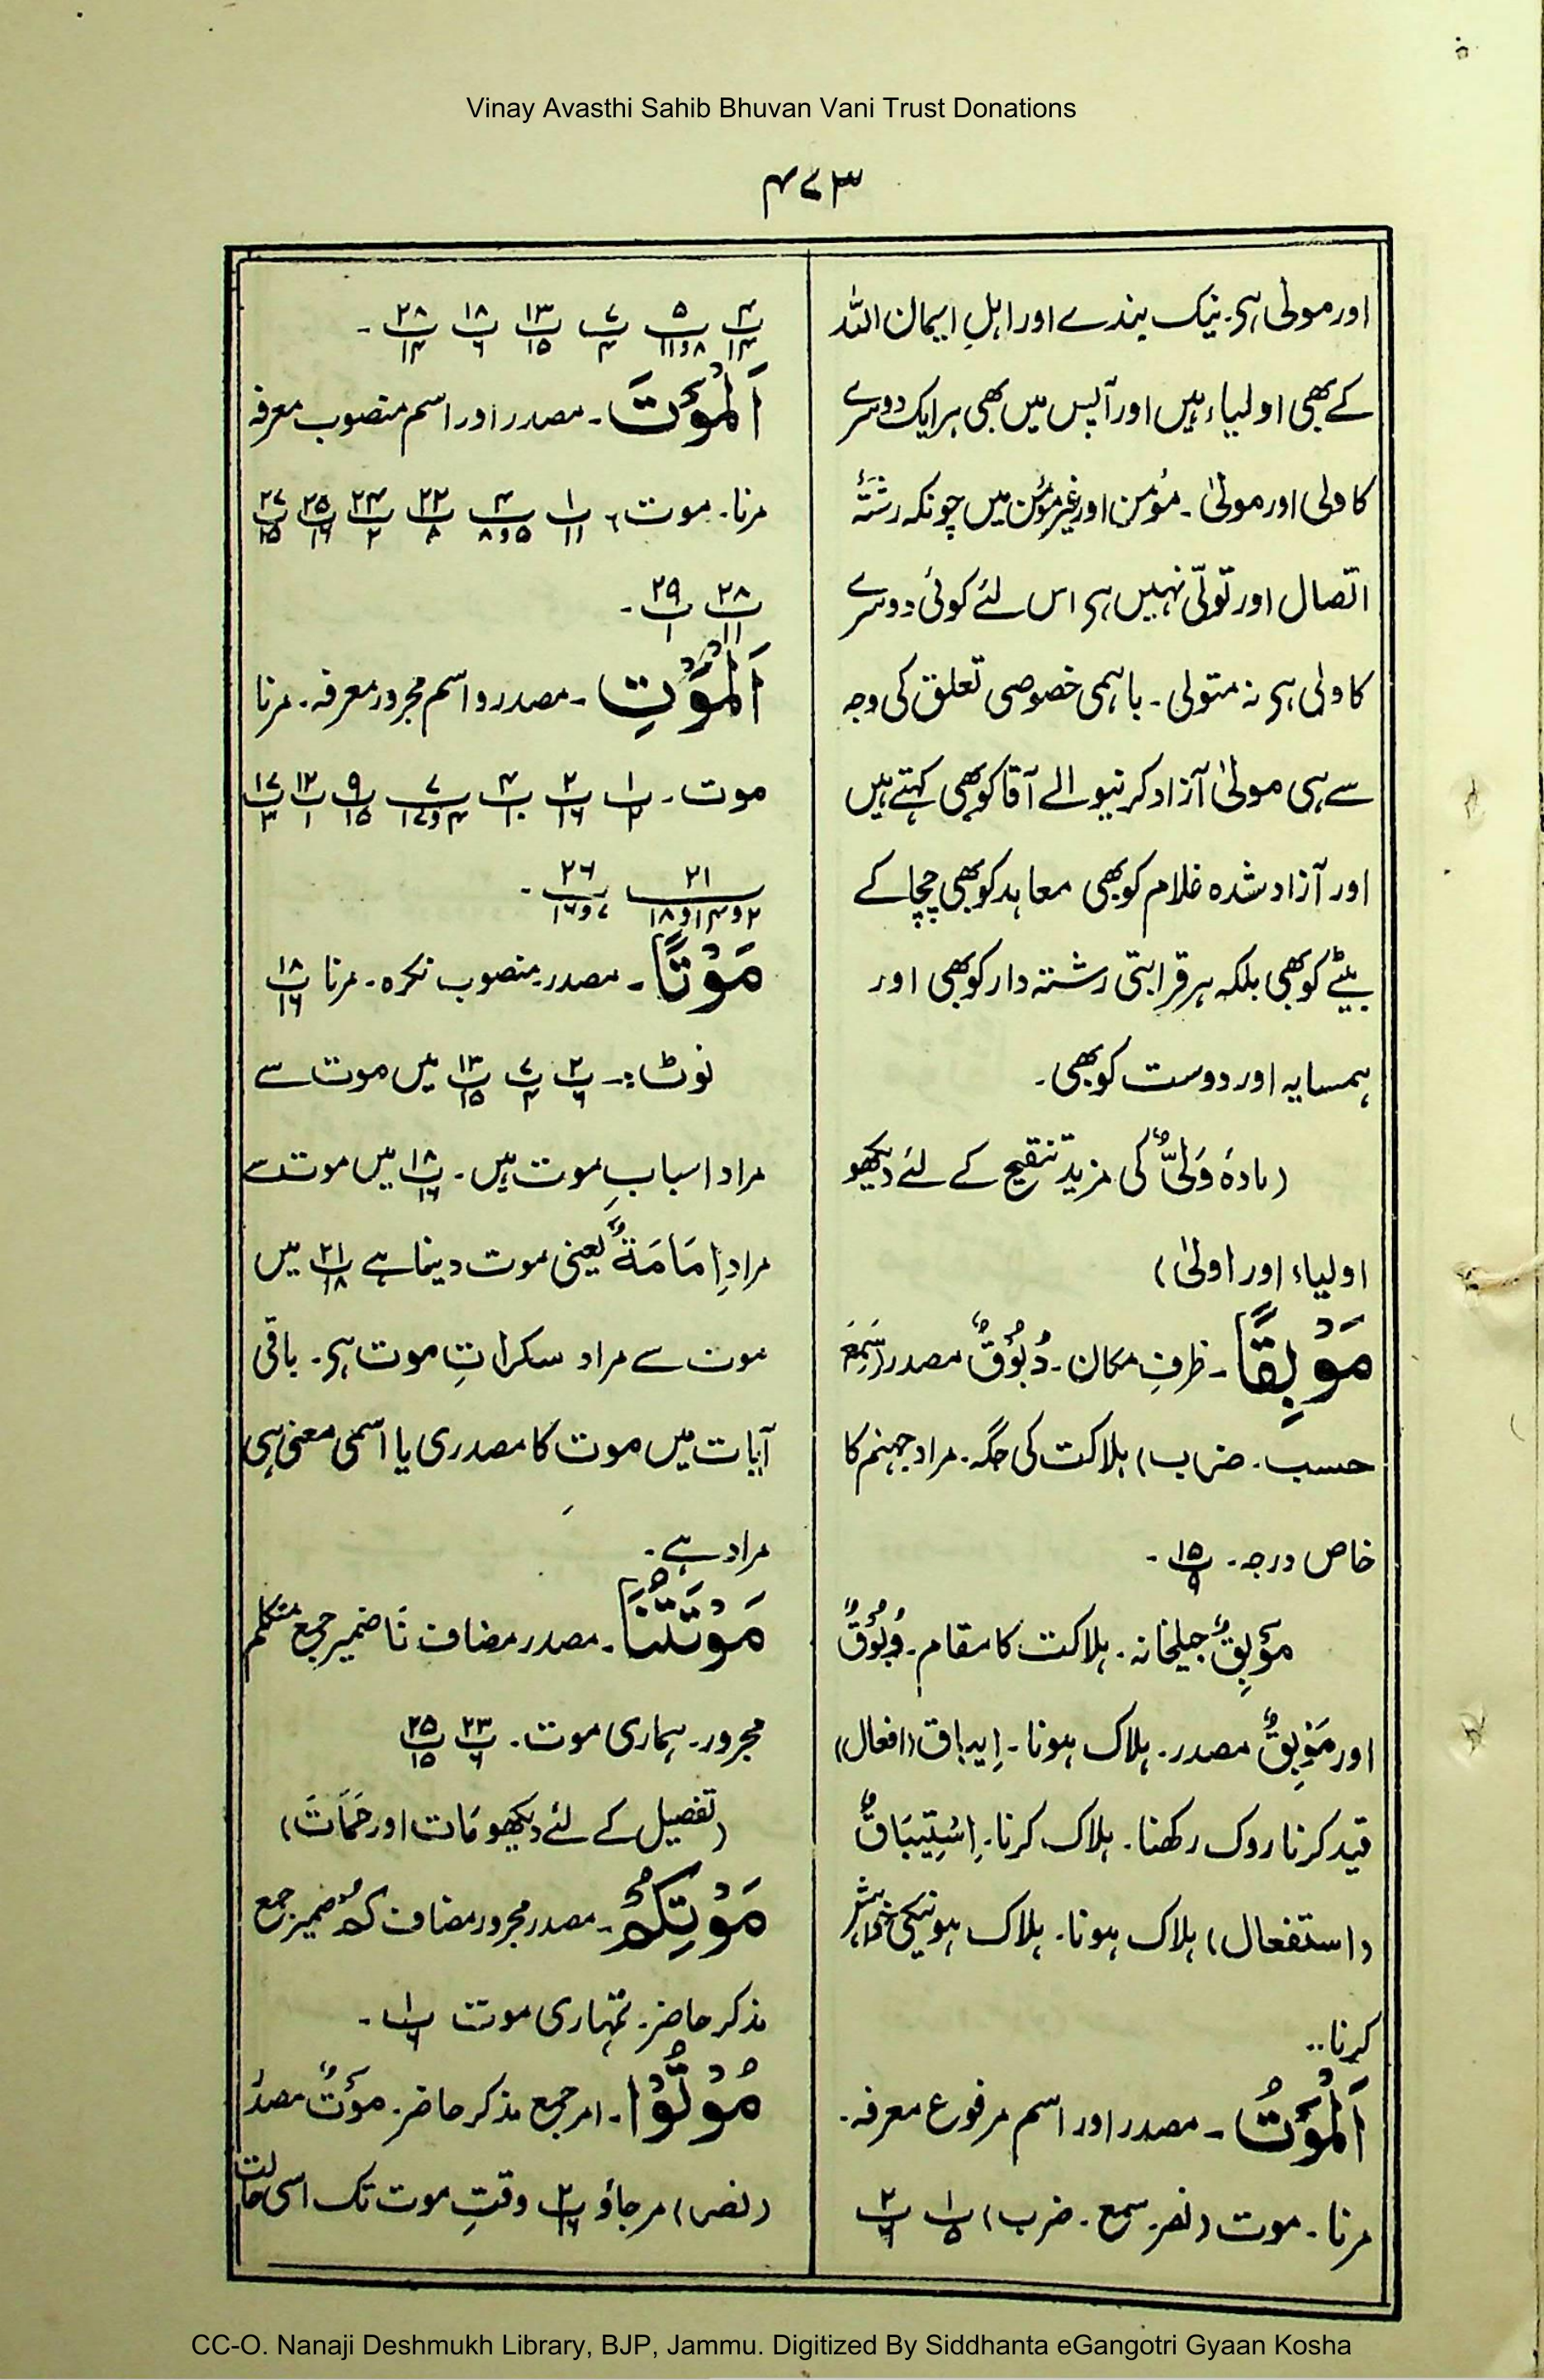 Vinay Avasthi Sahib Bhuvan Vani Trust Donations
۴۷۳
اور مولیٰ ہی۔ نیک بندے اور اہلِ ایمان اللہ
کے بھی اولیاء ہیں اور آپس میں بھی ہر ایک دوسرے
کا ولی اور مولیٰ ۔ مؤمن اور غیر مؤمن میں چونکہ رشتۂ
اتصال اور تولّی نہیں ہی اس لئے کوئی دوسرے
کا ولی ہی نہ متولی ۔ باہمی خصوصی تعلق کی وجہ
سے ہی مولیٰ آزاد کرنیوالے آقا کو بھی کہتے ہیں
اور آزاد شدہ غلام کو بھی معاہد کو بھی چچا کے
بیٹے کو بھی بلکہ ہر قرابتی رشتہ دار کو بھی اور
ہمسایہ اور دوست کو بھی۔
(مادۂ وَلیٌّ کی مزید تنقیح کے لئے دیکھو
اولیاء اور اولیٰ)
مَوْبِقًا ۔ ظرفِ مکان۔ دُبُوْقٌ مصدر (سَمِعَ
حسب۔ ضرب) ہلاکت کی جگہ۔ مراد جہنم کا
خاص درجہ۔ پ۱۵/۔
مَوْبِقٌ جیلخانہ۔ ہلاکت کا مقام۔ وُبُوْقٌ
اور مَوْبِقٌ مصدر۔ ہلاک ہونا۔ اِیباق (افعال)
قید کرنا روک رکھنا۔ ہلاک کرنا۔ اِسْتِیْبَاقٌ
(استفعال) ہلاک ہونا۔ ہلاک ہونیکی خواہش
کرنا۔۔
اَلْمَوْتُ ۔ مصدر اور اسم مرفوع معرفہ۔
مرنا۔ موت (نصر۔ سمع۔ ضرب) پ۱/۵ پ۲/۶
پ۴/۱۴ پ۵/۸و۱۱ پ۷/۴ پ۱۳/۱۵ پ۱۸/۶ پ۲۸/۱۴ ۔
اَلْمَوْتَ ۔ مصدر اور اسم منصوب معرفہ
مرنا۔ موت، پ۱/۱۱ پ۴/۵و۸ پ۲۲/۸ پ۲۴/۲ پ۲۵/۱۶ پ۲۷/۱۵
پ۲۸/۱۱ پ۲۹/۱ ۔
اَلْمَوْتِ ۔ مصدر و اسم مجرور معرفہ۔ مرنا
موت۔ پ۱/۲ پ۲/۱۶ پ۴/۱۰ پ۷/۴و۱۷ پ۹/۱۵ پ۱۲/۱ پ۱۷/۳
۲۱/۲و۱۴و۱۸ پ۲۶/۷و۱۶ ۔
مَوْتًا ۔ مصدر۔ منصوب نکرہ۔ مرنا پ۱۸/۱۶
نوٹ :۔ پ۲/۶ پ۷/۴ پ۱۳/۱۵ میں موت سے
مراد اسبابِ موت ہیں۔ پ۱۸/۱۶ میں موت سے
مراد اِمَامَۃٌ یعنی موت دینا ہے پ۲۱/۱۸ میں
موت سے مراد سکراتِ موت ہی۔ باقی
آیات میں موت کا مصدری یا اسمی معنی ہی
مراد ہے۔
مَوْتَتَنَا ۔ مصدر مضاف نَا ضمیر جمع متکلم
مجرور۔ ہماری موت۔ پ۲۳/۶ پ۲۵/۱۵
(تفصیل کے لئے دیکھو مَات اور مَمَاتَ)
مَوْتِکُمْ ۔ مصدر مجرور مضاف کُمْ ضمیر جمع
مذکر حاضر۔ تمہاری موت پ۱/۶ ۔
مُوْتُوْا ۔ امر جمع مذکر حاضر۔ مَوْتٌ مصدر
(نصر) مر جاؤ پ۲/۱۶ وقتِ موت تک اسی حالت
CC-O. Nanaji Deshmukh Library, BJP, Jammu. Digitized By Siddhanta eGangotri Gyaan Kosha